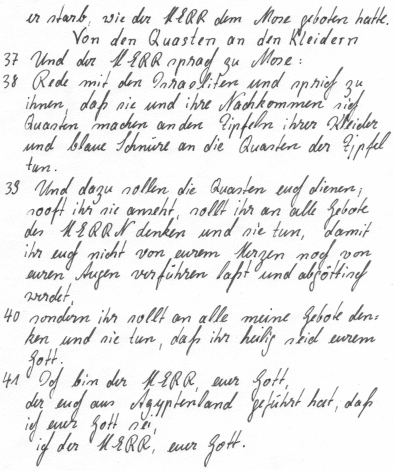 er starb, wie der HERR dem Mose geboten hatte.
Von den Quasten an den Kleidern
37 Und der HERR sprach zu Mose:
38 Rede mit den Israeliten und sprich zu
ihnen, daß sie und ihre Nachkommen sich
Quasten machen an den Zipfeln ihrer Kleider
und blaue Schnüre an die Quasten der Zipfel
tun.
39 Und dazu sollen die Quasten euch dienen;
sooft ihr sie anseht, sollt ihr an alle Gebote
des HERRN denken und sie tun, damit
ihr euch nicht von eurem Herzen noch von
euren Augen verführen laßt und abgöttisch
werdet,
40 sondern ihr sollt an alle meine Gebote den=
ken und sie tun, daß ihr heilig seid eurem
Gott.
41 Ich bin der HERR, euer Gott,
der euch aus Ägyptenland geführt hat, daß
ich euer Gott sei,
ich der HERR, euer Gott.